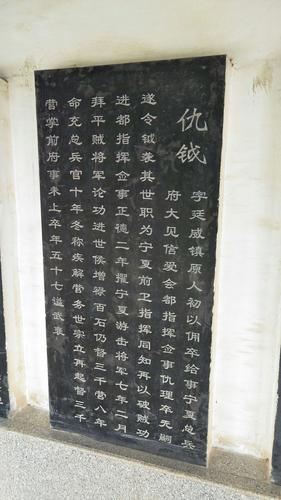 仇钺
字廷威镇原人初以佣卒给事宁夏总兵
府大见信爱会都指挥佥事仇理卒无嗣
遂令钺袭其世职为宁夏前卫指挥同知再以破贼功
进都指挥佥事正德二年擢宁夏游击将军七年二月
拜平贼将军论功进世侯增禄百石仍督三千营八年
命充总兵官十年冬称疾解营务世宗立再起督三千
营掌前府事未上卒年五十七谥武襄